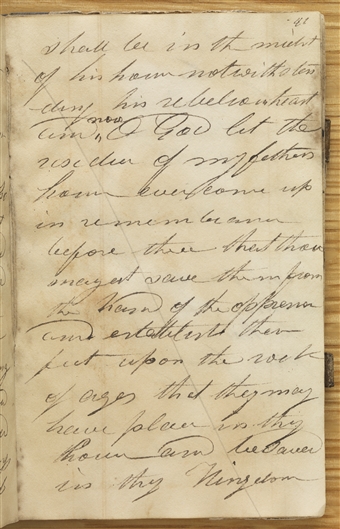 shall be in th midst
of his hous notwithsten
ding his rebelious heart
and now O God let the
residue of my fathers
hous ever come up
in remembranc
before thee that thou
mayest save them from
the hand of the oppressor
and establish their
feet upon the rock
of ages that they may
have place in thy
hous and be saved
in thy Kingdom